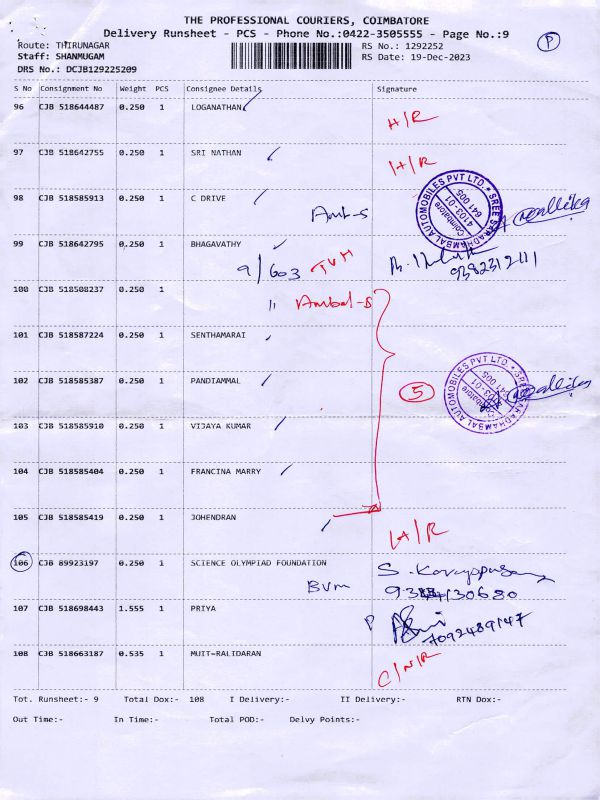 THE PROFESSIONAL COURIERS, COIMBATORE
Delivery Runsheet - PCS - Phone No.:0422-3505555 - Page No.:9
P
Route: THIRUNAGAR
RS No.: 1292252
Staff: SHANMUGAM
RS Date: 19-Dec-2023
DRS No.: DCJB129225209
S No Consignment No Weight PCS Consignee Details Signature
96 CJB 518644487 0.250 1 LOGANATHAN
H/R
97 CJB 518642755 0.250 1 SRI NATHAN
H/R
98 CJB 518585913 0.250 1 C DRIVE
SREE SARADHAMBAL AUTOMOBILES PVT LTD.
4103-01
Coimbatore
641 005
99 CJB 518642795 0.250 1 BHAGAVATHY
9/603 TVH
9382312111
100 CJB 518508237 0.250 1
11 Ambal-s
101 CJB 518587224 0.250 1 SENTHAMARAI
102 CJB 518585387 0.250 1 PANDIAMMAL
5
SREE SARADHAMBAL AUTOMOBILES PVT LTD.
4103-01
Coimbatore
641 005
103 CJB 518585910 0.250 1 VIJAYA KUMAR
104 CJB 518585404 0.250 1 FRANCINA MARRY
105 CJB 518585419 0.250 1 JOHENDRAN
H/R
106 CJB 89923197 0.250 1 SCIENCE OLYMPIAD FOUNDATION
BVM
107 CJB 518698443 1.555 1 PRIYA
P
7092489147
108 CJB 518663187 0.535 1 MUIT-RALIDARAN
C/N/R
Tot. Runsheet:- 9 Total Dox:- 108 I Delivery:- II Delivery:- RTN Dox:-
Out Time:- In Time:- Total POD:- Delvy Points:-